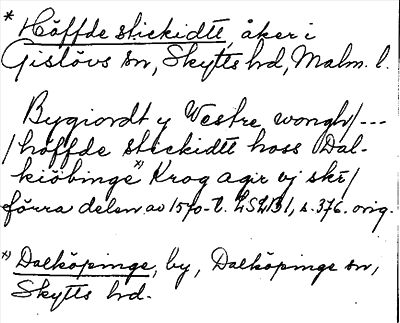 * Höffde stickidtt, åker i
Gislövs sn, Skytts hd, Malm. l.
Bygiordt y Westre wongh/---
/höffde stickidtt hoss Dal-
kiöbinge *) Krog agir vj skr/
förra delen av 1570-t. LSLIB1, s. 376. orig.
*) Dalköpinge, by, Dalköpinge sn,
Skytts hd.